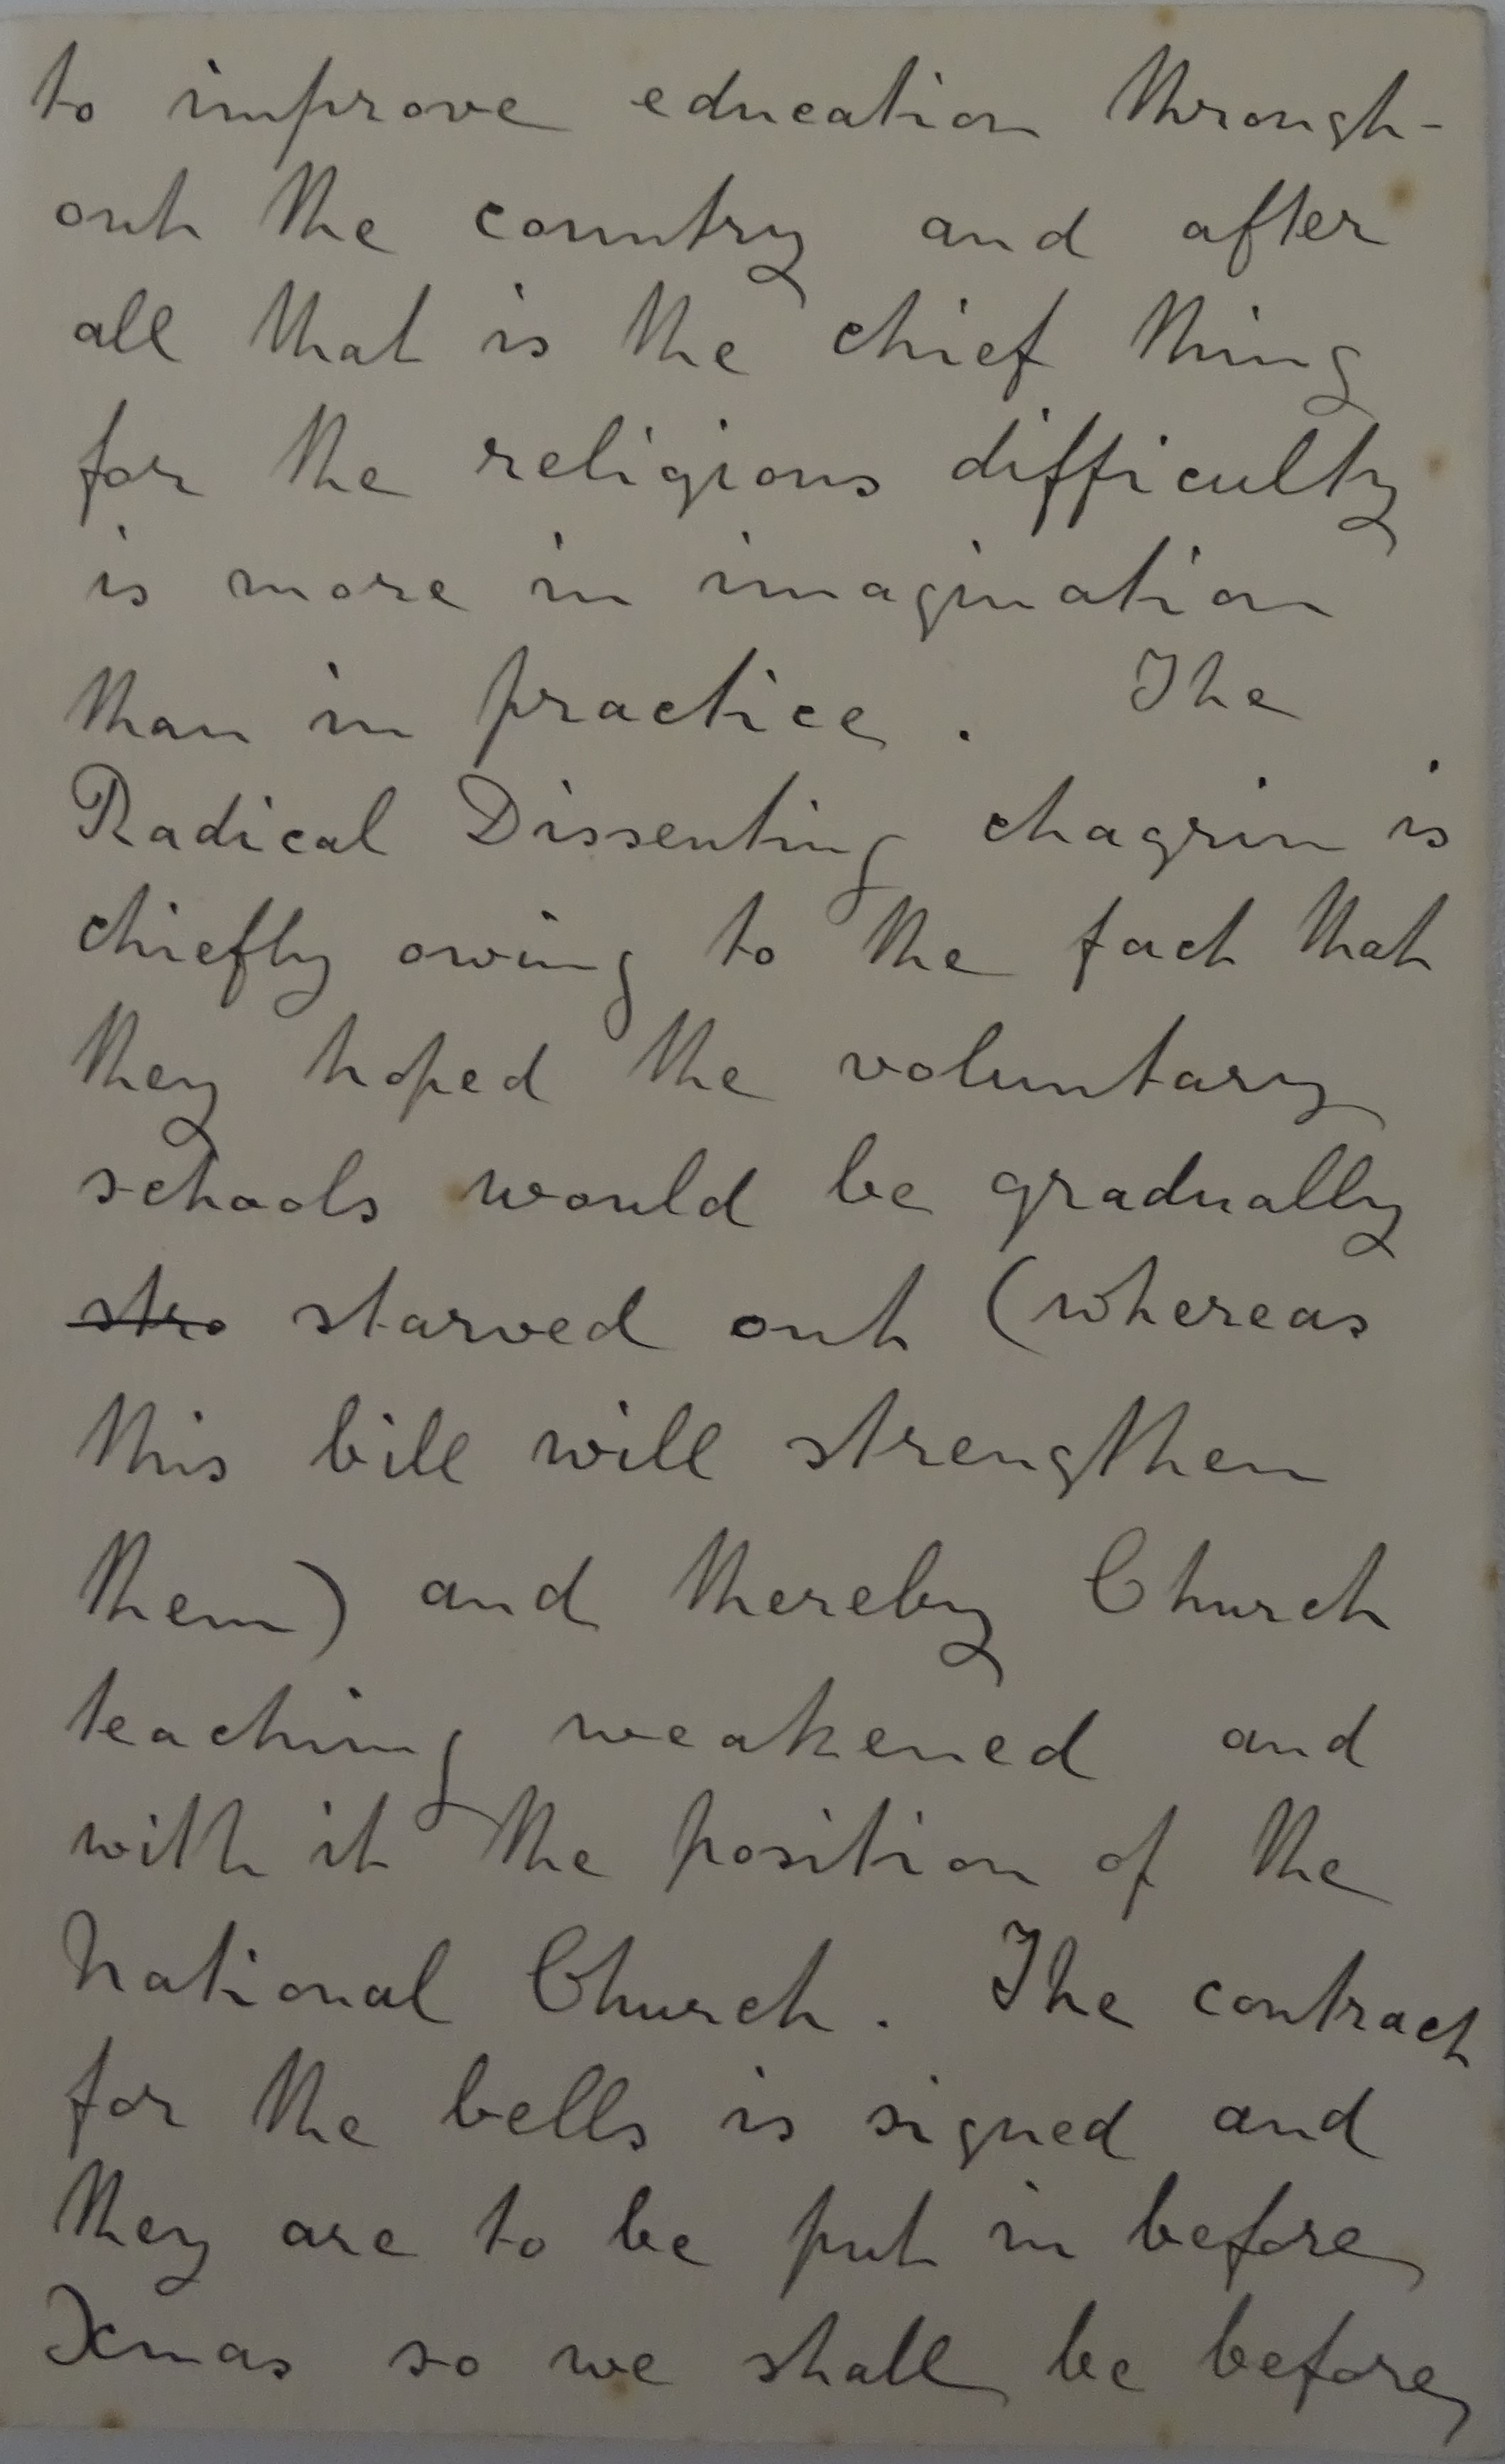 to improve education through-
out the country and after
all that is the chief thing
for the religious difficulty
is more in imagination
than in practice. The
Radical Dissenting chagrin is
chiefly owing to the fact that
they hoped the voluntary
schools would be gradually
stro starved out (whereas
this bill will strengthen
them) and thereby Church
teaching weakened and
with it the position of the
National Church. The contract
for the bells is signed and
they are to be put in before
Xmas so we shall be before